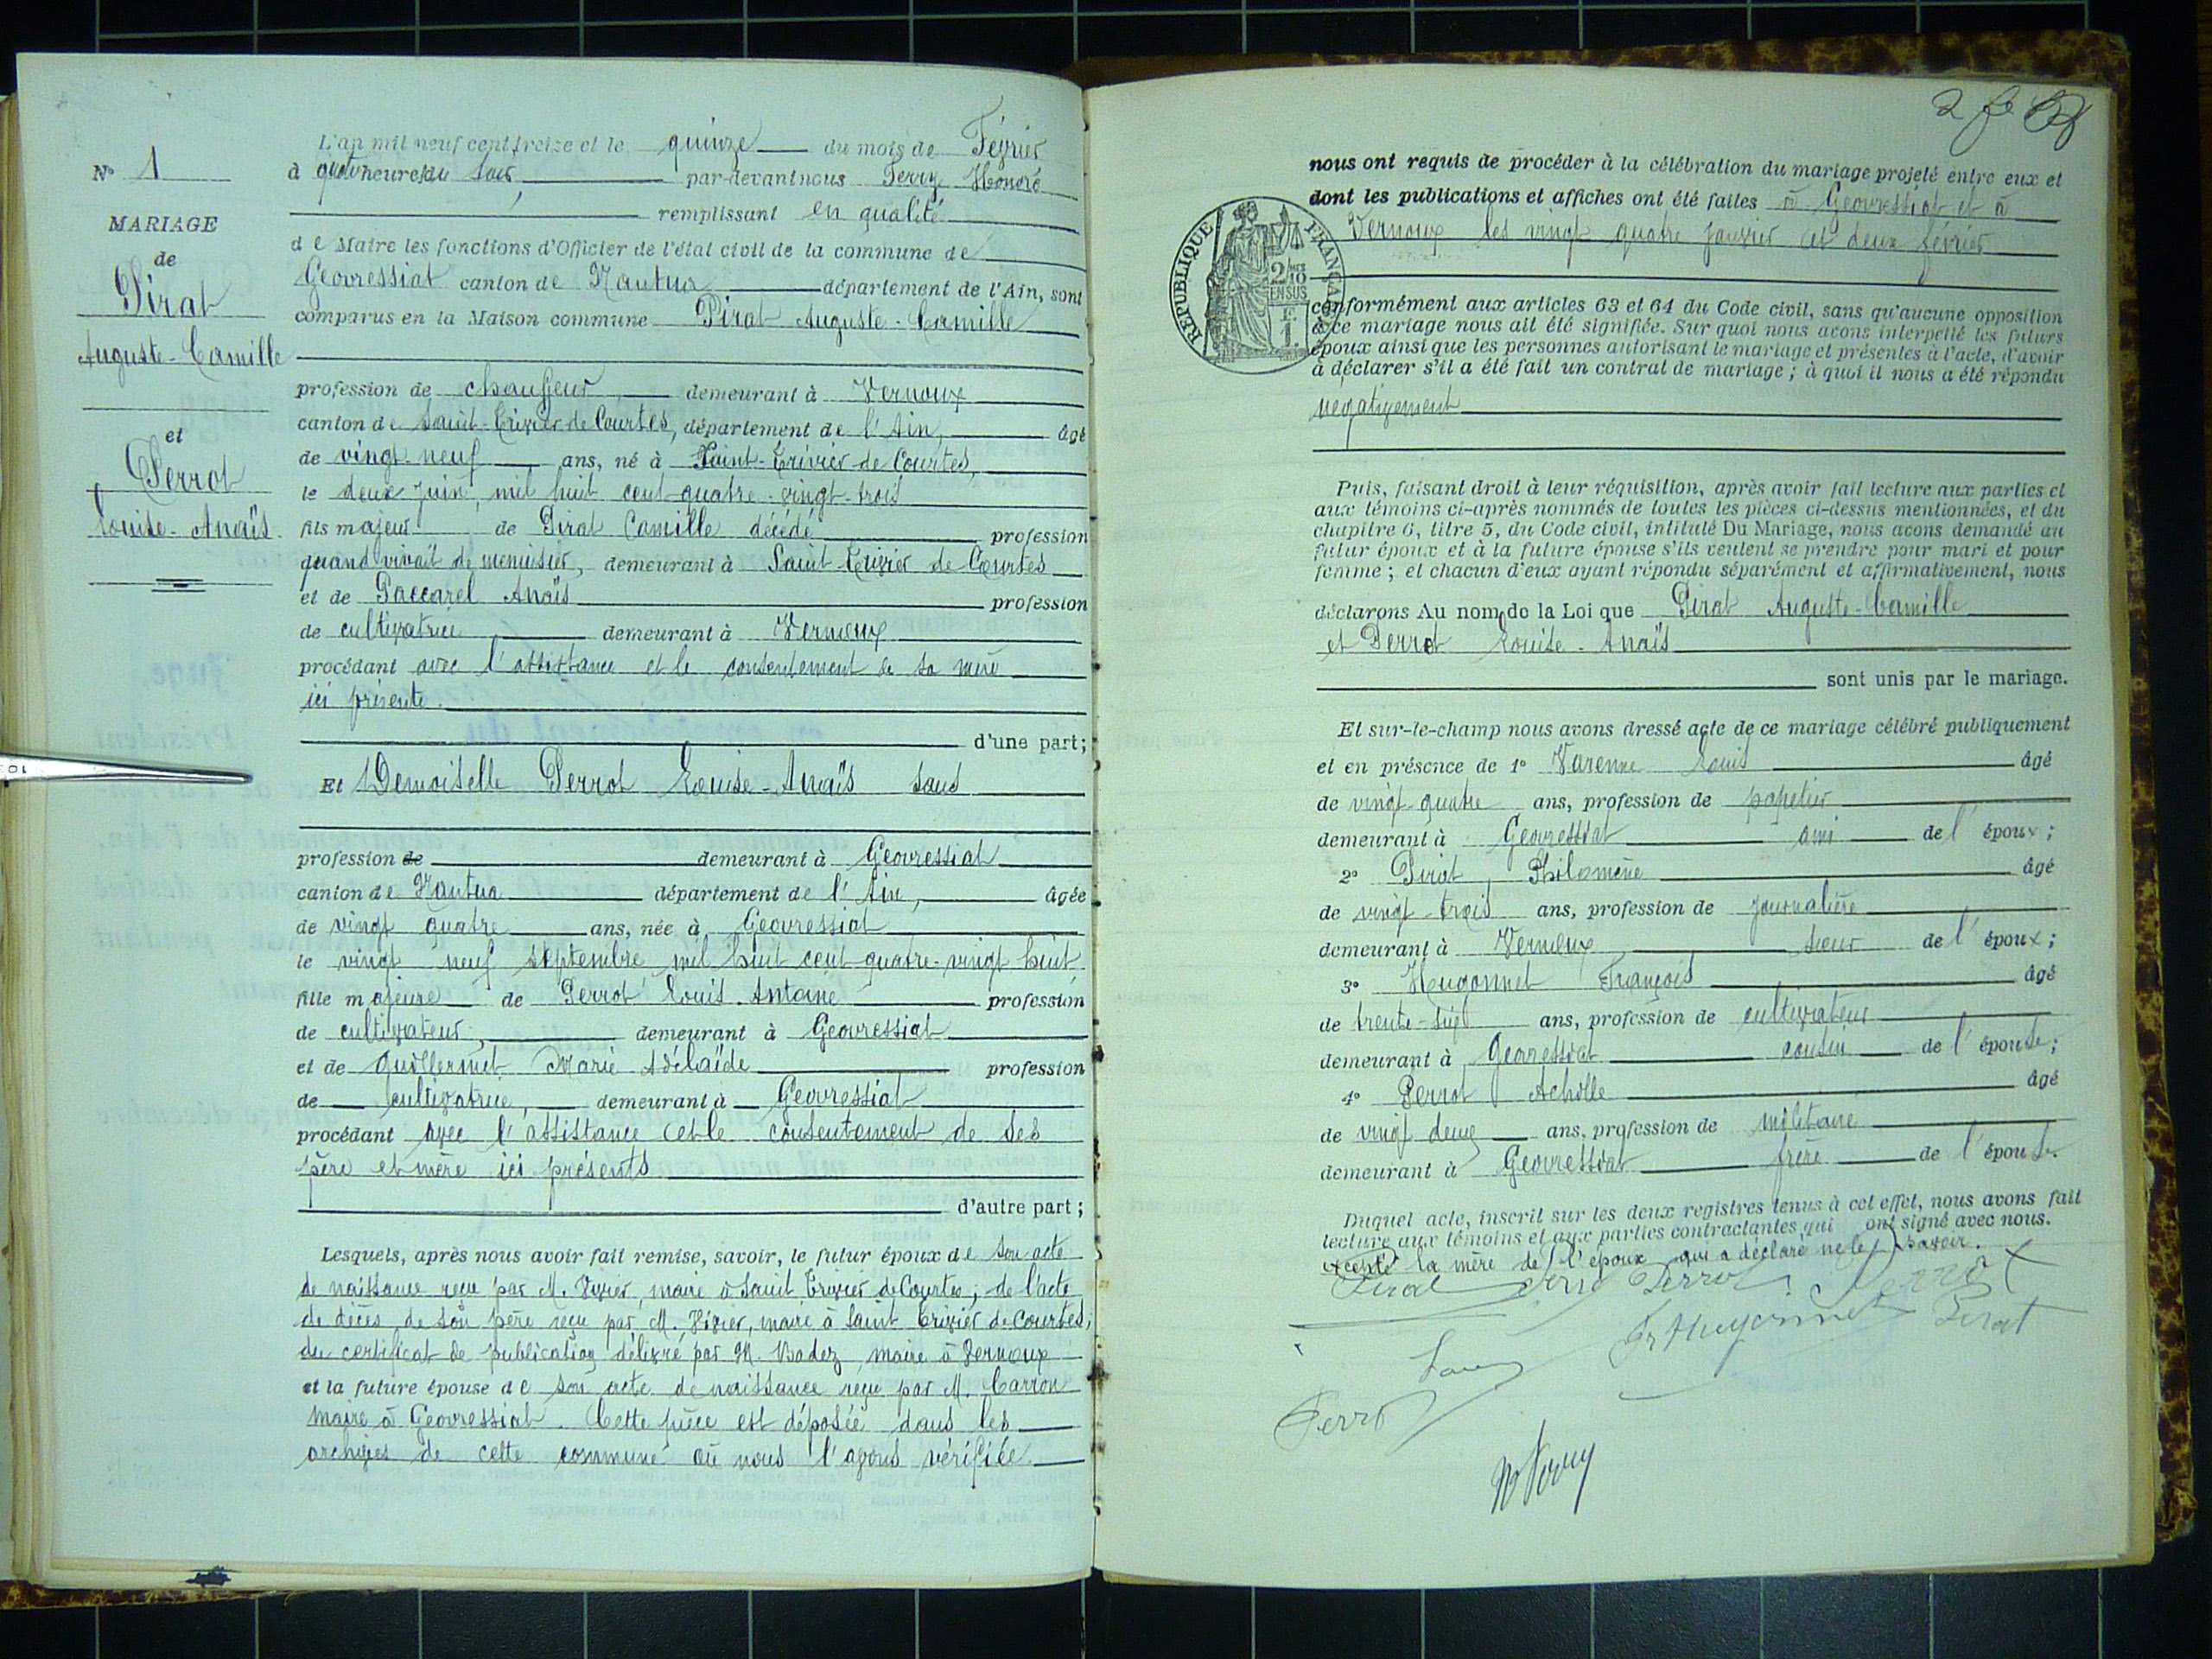 N° 1
MARIAGE
de
Pirat
Auguste-Camille
et
Perrot
Louise-Anaïs
L'an mil neuf cent treize et le quinze du mois de Février
à quatre heures du soir, par-devant nous Perny Honoré
remplissant en qualité
de Maire les fonctions d'Officier de l'état civil de la commune de
Geovressiat canton de Nantua département de l'Ain, sont
comparus en la Maison commune Pirat Auguste-Camille
profession de chauffeur, demeurant à Vernoux
canton de Saint-Trivier de Courtes, département de l'Ain, âgé
de vingt-neuf ans, né à Saint-Trivier-de Courtes,
le deux juin, mil huit cent quatre-vingt-trois
fils majeur de Pirat Camille décédé profession
quand vivait de menuisier, demeurant à Saint-Trivier de Courtes
et de Paccarel Anaïs profession
de cultivatrice demeurant à Vernoux
procédant avec l'assistance et le consentement de sa mère
ici présente.
d'une part;
Et Demoiselle Perrot Louise-Anaïs sans
profession de demeurant à Geovressiat
canton de Nantua département de l'Ain, âgée
de vingt quatre ans, née à Geovressiat
le vingt neuf septembre mil huit cent quatre-vingt huit
fille majeure de Perrot Louis-Antoine profession
de cultivateur, demeurant à Geovressiat
et de Guillermet Marie Adélaïde profession
de cultivatrice, demeurant à Geovressiat
procédant avec l'assistance et le consentement de ses
père et mère ici présents
d'autre part;
Lesquels, après nous avoir fait remise, savoir, le futur époux de son acte
de naissance reçu par M. Vivier, maire à Saint Trivier de Courtes; de l'acte
de décès de son père reçu par M. Vivier, maire à Saint Trivier de Courtes,
du certificat de publication délivré par M. Badez, maire à Vernoux
et la future épouse de son acte de naissance reçu par M. Carron
maire à Geovressiat. Cette pièce est déposée dans les
archives de cette commune où nous l'avons vérifiée
nous ont requis de procéder à la célébration du mariage projeté entre eux et
dont les publications et affiches ont été faites à Geovressiat et à
Vernoux les vingt quatre janvier et deux février
RÉPUBLIQUE FRANÇAISE
2/10
EN SUS
F.
1.
conformément aux articles 63 et 64 du Code civil, sans qu'aucune opposition
à ce mariage nous ait été signifiée. Sur quoi nous avons interpellé les futurs
époux ainsi que les personnes autorisant le mariage et présentes à l'acte, d'avoir
à déclarer s'il a été fait un contrat de mariage; à quoi il nous a été répondu
négativement
Puis, faisant droit à leur réquisition, après avoir fait lecture aux parties et
aux témoins ci-après nommés de toutes les pièces ci-dessus mentionnées, et du
chapitre 6, titre 5, du Code civil, intitulé Du Mariage, nous avons demandé au
futur époux et à la future épouse s'ils veulent se prendre pour mari et pour
femme; et chacun d'eux ayant répondu séparément et affirmativement, nous
déclarons Au nom de la Loi que Pirat Auguste-Camille
et Perrot Louise-Anaïs
sont unis par le mariage.
Et sur-le-champ nous avons dressé acte de ce mariage célébré publiquement
et en présence de 1° Varenne Louis âgé
de vingt quatre ans, profession de papetier
demeurant à Geovressiat ami de l'époux;
2° Pirat Philomène âgé
de vingt trois ans, profession de journalière
demeurant à Vernoux, sœur de l'époux;
3° Hugonnet François âgé
de trente-six ans, profession de cultivateur
demeurant à Geovressiat cousin de l'épouse;
4° Perrot Achille âgé
de vingt deux ans, profession de militaire
demeurant à Geovressiat frère de l'épouse.
Duquel acte, inscrit sur les deux registres tenus à cet effet, nous avons fait
lecture aux témoins et aux parties contractantes qui ont signé avec nous.
excepté la mère de l'époux qui a déclaré ne le savoir.
Pirat Perrot Perrot
Fr Hugonnet Pirat
Perrot
H Perny